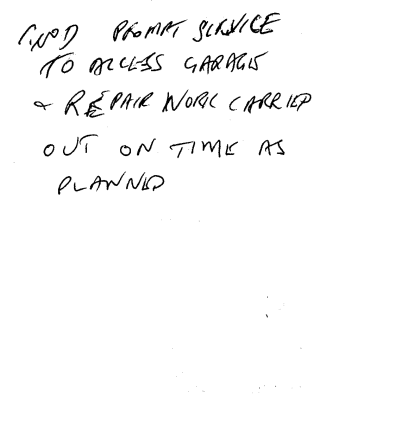 GOOD PROMPT SERVICE
TO ACCESS GARAGE
& REPAIR WORK CARRIED
OUT ON TIME AS
PLANNED